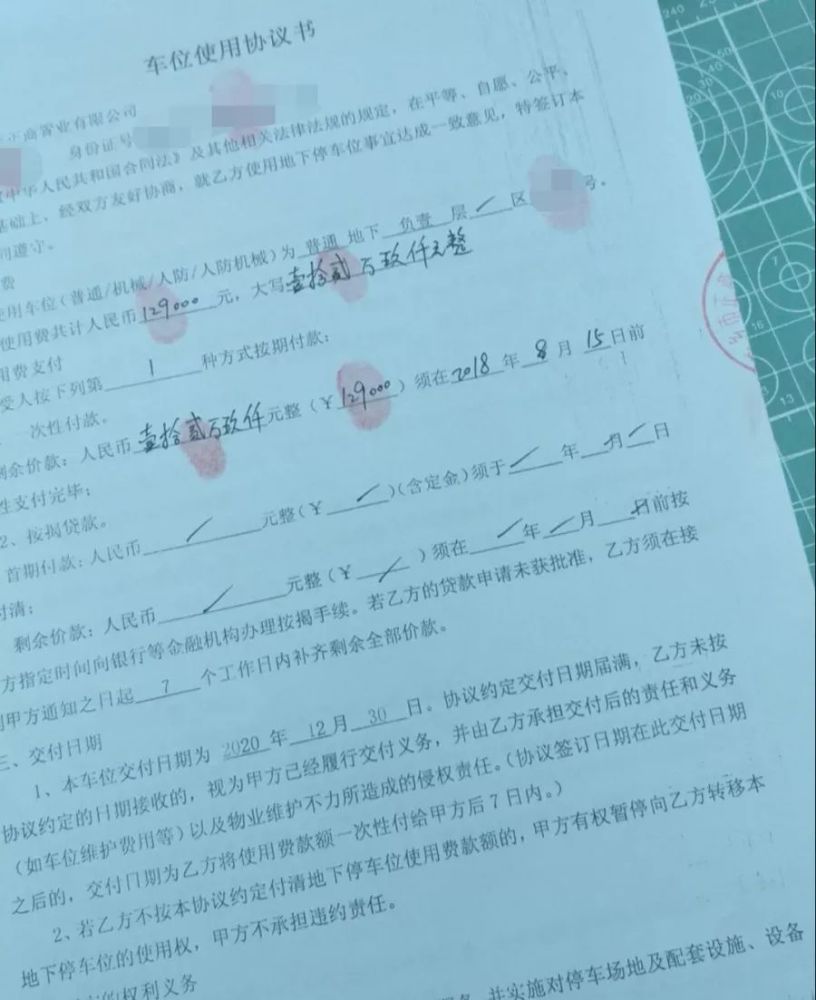 车位使用协议书
正商置业有限公司
身份证号
《中华人民共和国合同法》及其他相关法律法规的规定，在平等、自愿、公平、
基础上，经双方友好协商，就乙方使用地下停车位事宜达成一致意见，特签订本
同遵守。
费
使用车位(普通/机械/人防/人防机械)为 普通 地下 负壹 层 / 区 号。
使用费共计人民币 129000 元，大写壹拾贰万玖仟元整
用费支付
受人按下列第 1 种方式按期付款：
一次性付款。
剩余价款：人民币 壹拾贰万玖仟 元整（￥129000）须在2018 年 8 月 15 日前
性支付完毕；
2、按揭贷款。
首期付款：人民币 / 元整（￥ / ）(含定金)须于 / 年 / 月 / 日
付清；
剩余价款：人民币 / 元整（￥ / ）须在 / 年 / 月 日前按
方指定时间向银行等金融机构办理按揭手续。若乙方的贷款申请未获批准，乙方须在接
到甲方通知之日起 7 个工作日内补齐剩余全部价款。
三、交付日期
1、本车位交付日期为 2020 年 12 月 30 日。协议约定交付日期届满，乙方未按
协议约定的日期接收的，视为甲方已经履行交付义务，并由乙方承担交付后的责任和义务
（如车位维护费用等）以及物业维护不力所造成的侵权责任。（协议签订日期在此交付日期
之后的，交付日期为乙方将使用费款额一次性付给甲方后7日内。）
2、若乙方不按本协议约定付清地下停车位使用费款额的，甲方有权暂停向乙方转移本
地下停车位的使用权，甲方不承担违约责任。
的权利义务
并实施对停车场地及配套设施、设备